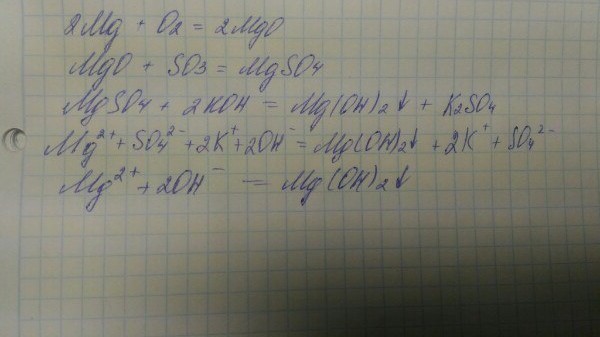 2Mg + O2 = 2MgO
MgO + SO3 = MgSO4
MgSO4 + 2KOH = Mg(OH)2↓ + K2SO4
Mg²⁺ + SO4²⁻ + 2K⁺ + 2OH⁻ = Mg(OH)2↓ + 2K⁺ + SO4²⁻
Mg²⁺ + 2OH⁻ — Mg(OH)2↓